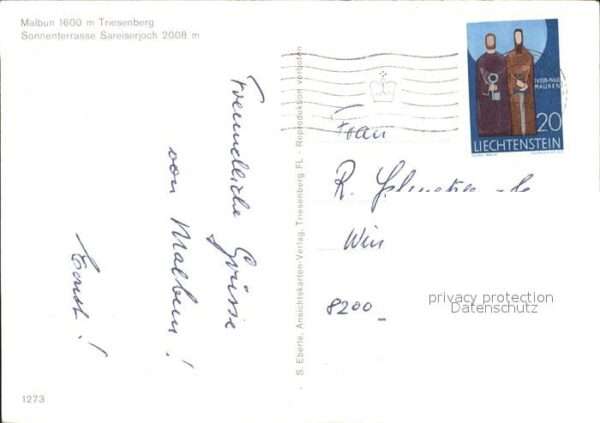 Malbun 1600 m Triesenberg
Sonnenterrasse Sareiserjoch 2008 m
Freundliche Grüsse
von Malbun!
S. Eberle, Ansichtskarten-Verlag, Triesenberg FL - Reproduktion verboten
20
LIECHTENSTEIN
Frau
R.
Win
8200
privacy protection
Datenschutz
1273